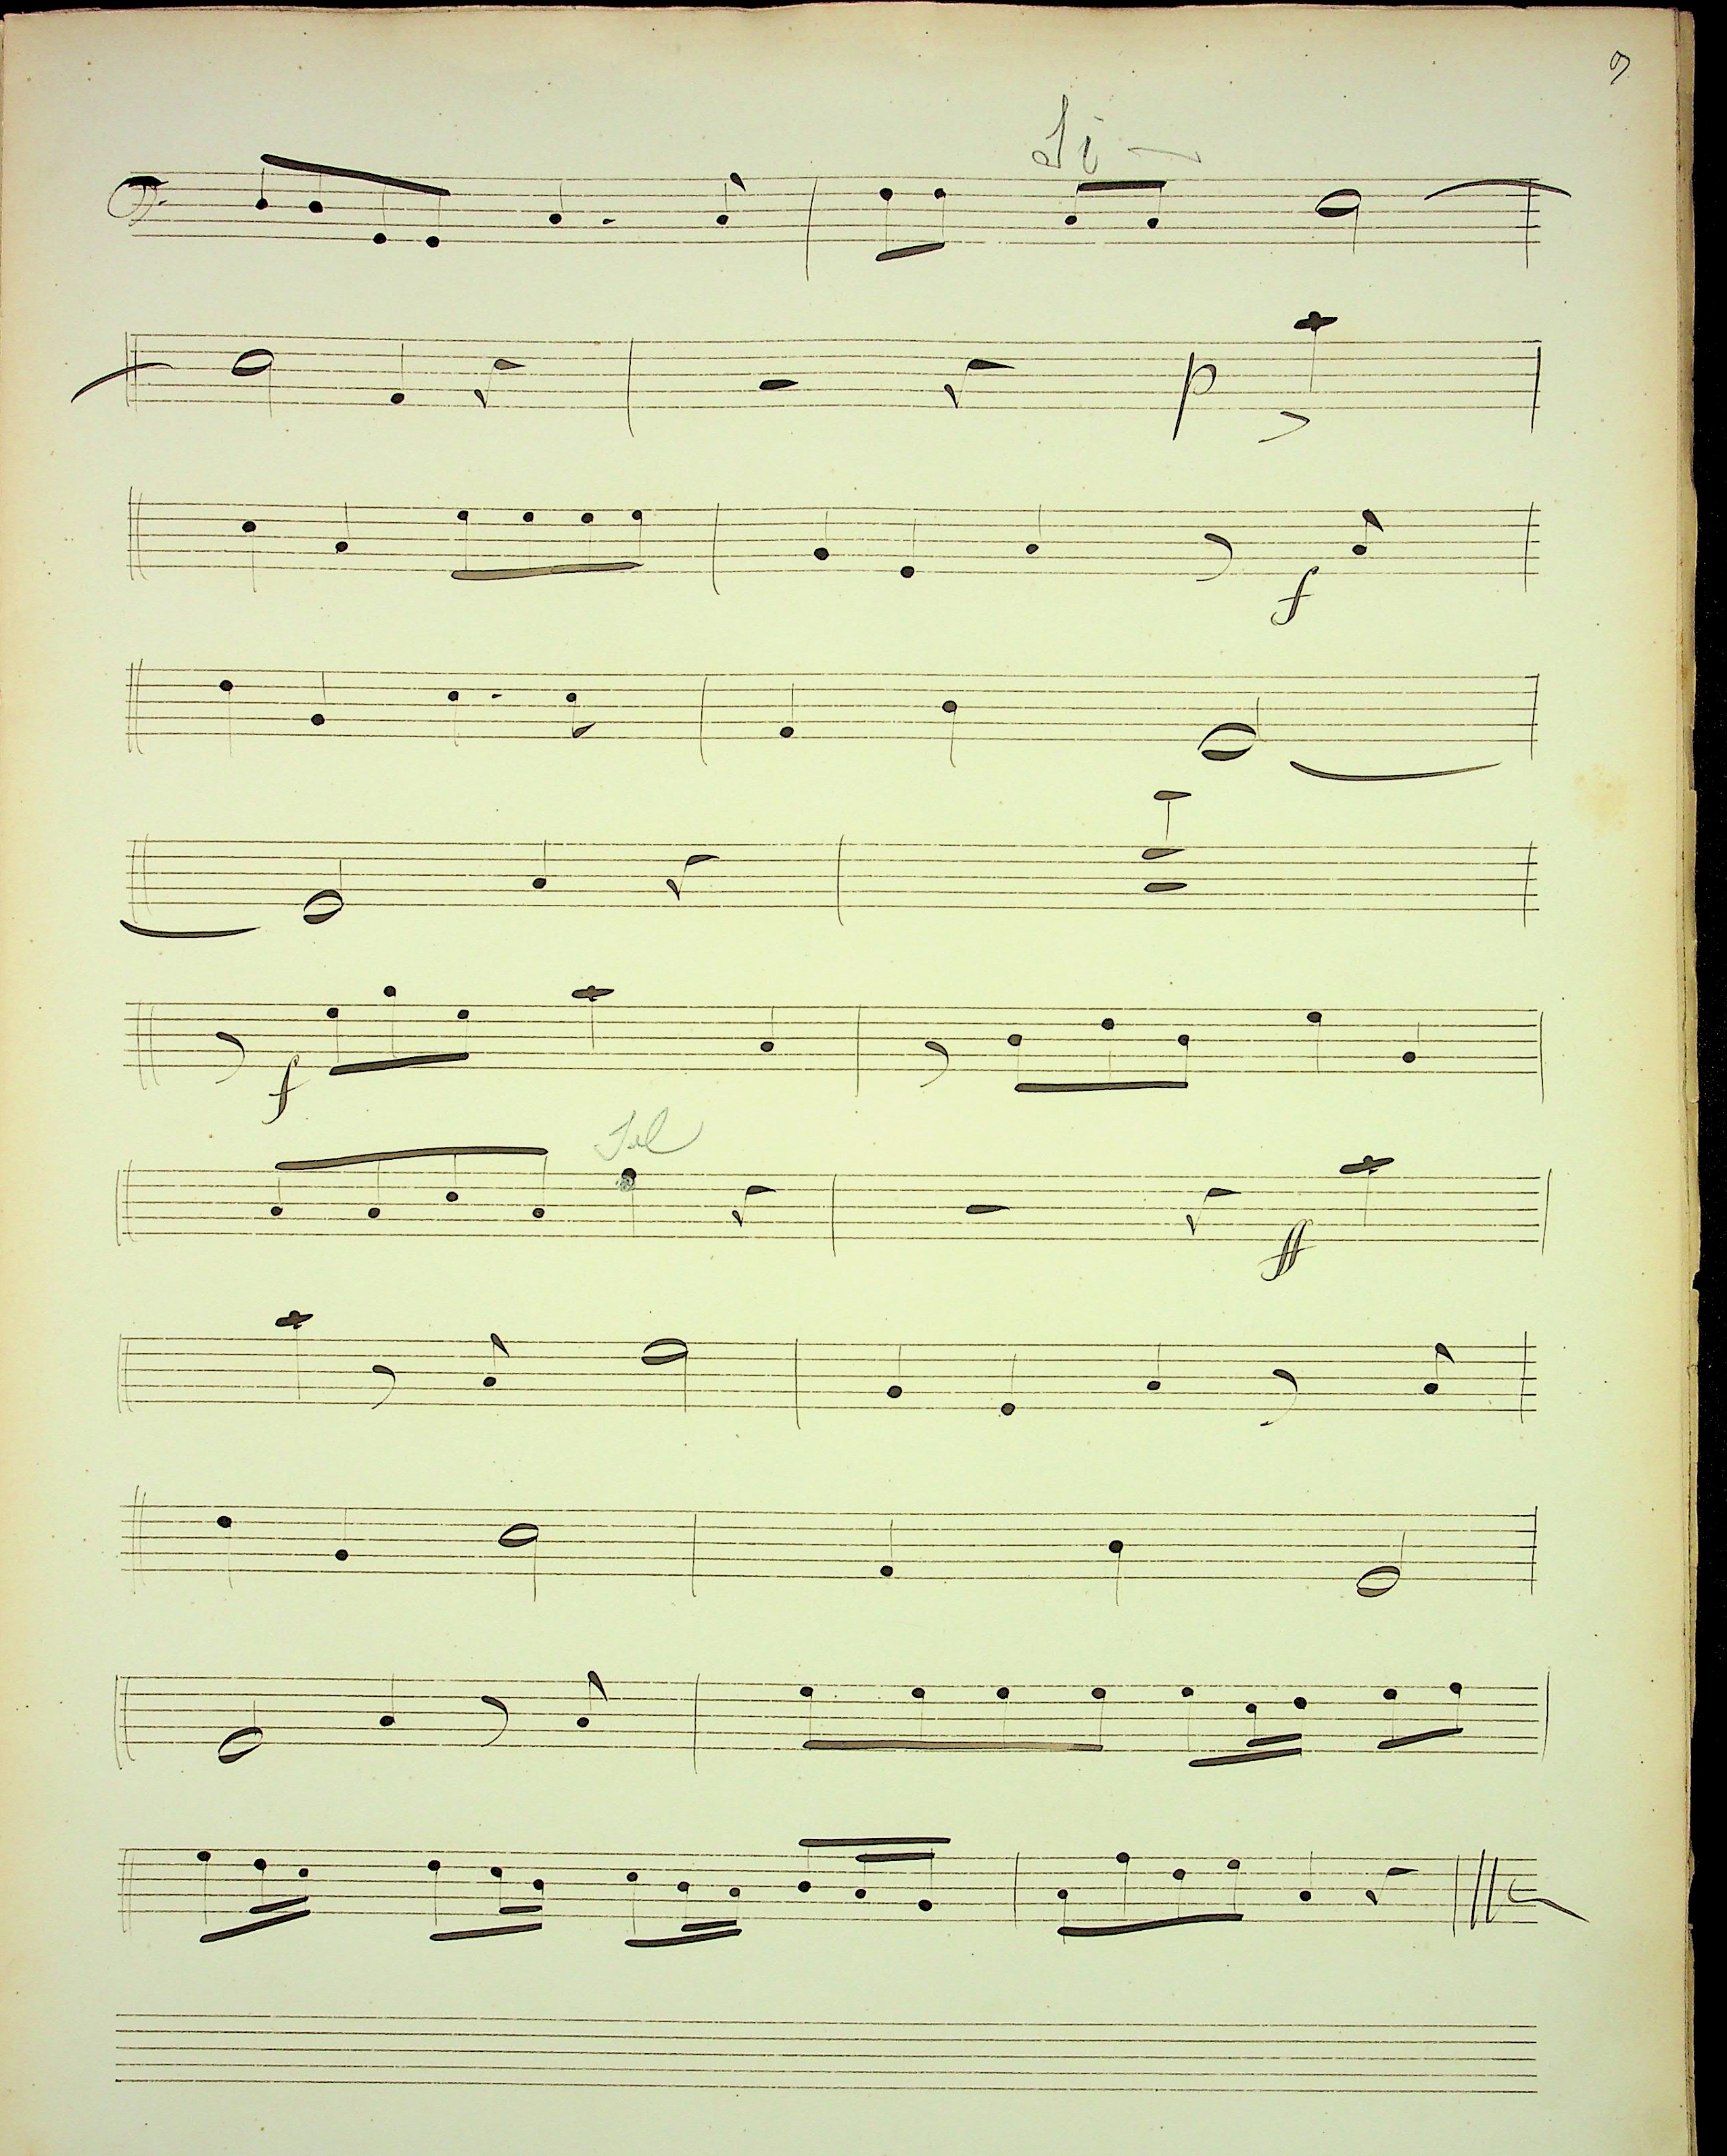 9
Si
p
f
f
Sol
ff